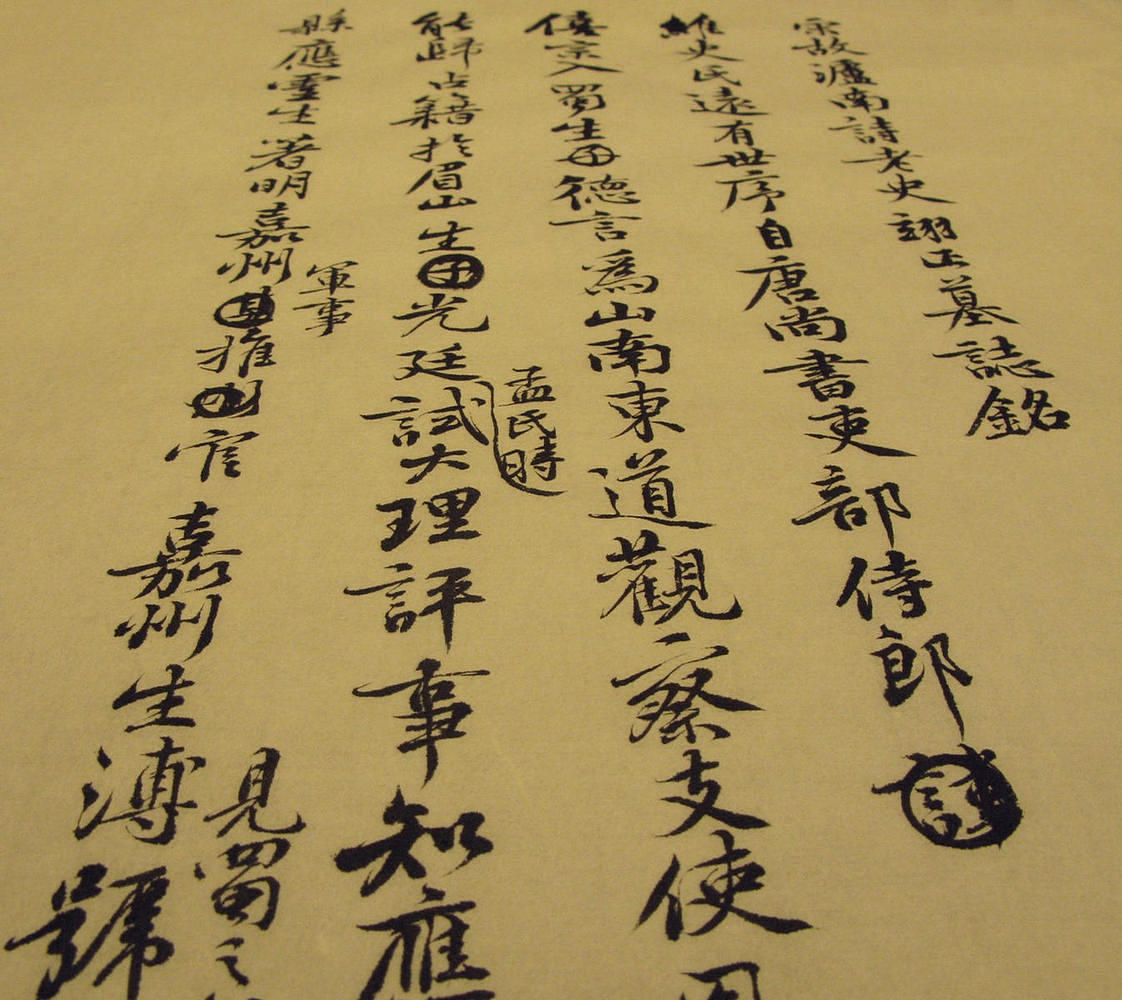 宋故瀘南詩老史翊正墓誌銘
維史氏遠有世序自唐尚書吏部侍郎諱
僖宗入蜀生子德言為山南東道觀察支使因
能歸占籍於眉山生子光廷試大理評事知應
孟氏時
縣應靈生著明嘉州推官嘉州生溥號
軍事
見蜀之